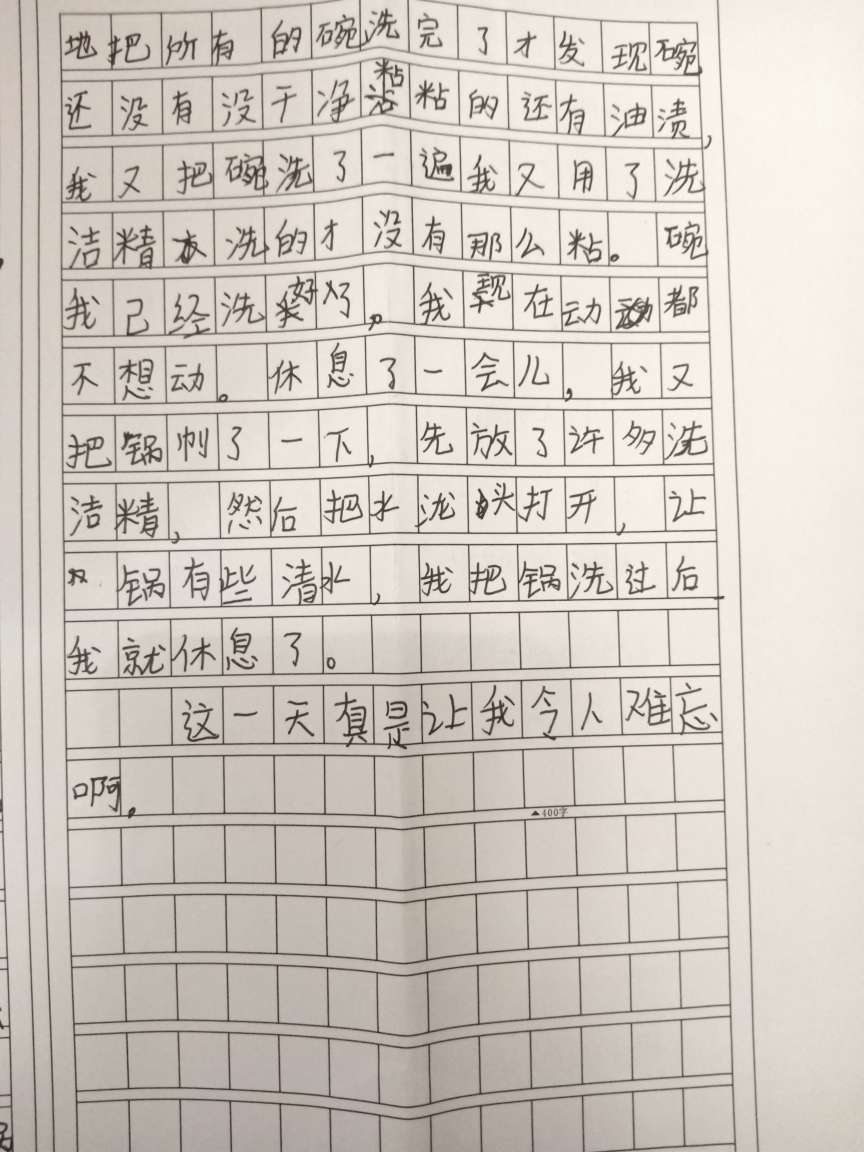 地把所有的碗洗完了才发现碗
还没有没干净粘粘的还有油渍,
我又把碗洗了一遍我又用了洗
洁精洗的才没有那么粘。碗
我已经洗好了。我现在动都
不想动。休息了一会儿,我又
把锅刷了一下,先放了许多洗
洁精,然后把水泷头打开,让
锅有些清水,我把锅洗过后
我就休息了。
这一天真是让我令人难忘
啊。
▲400字